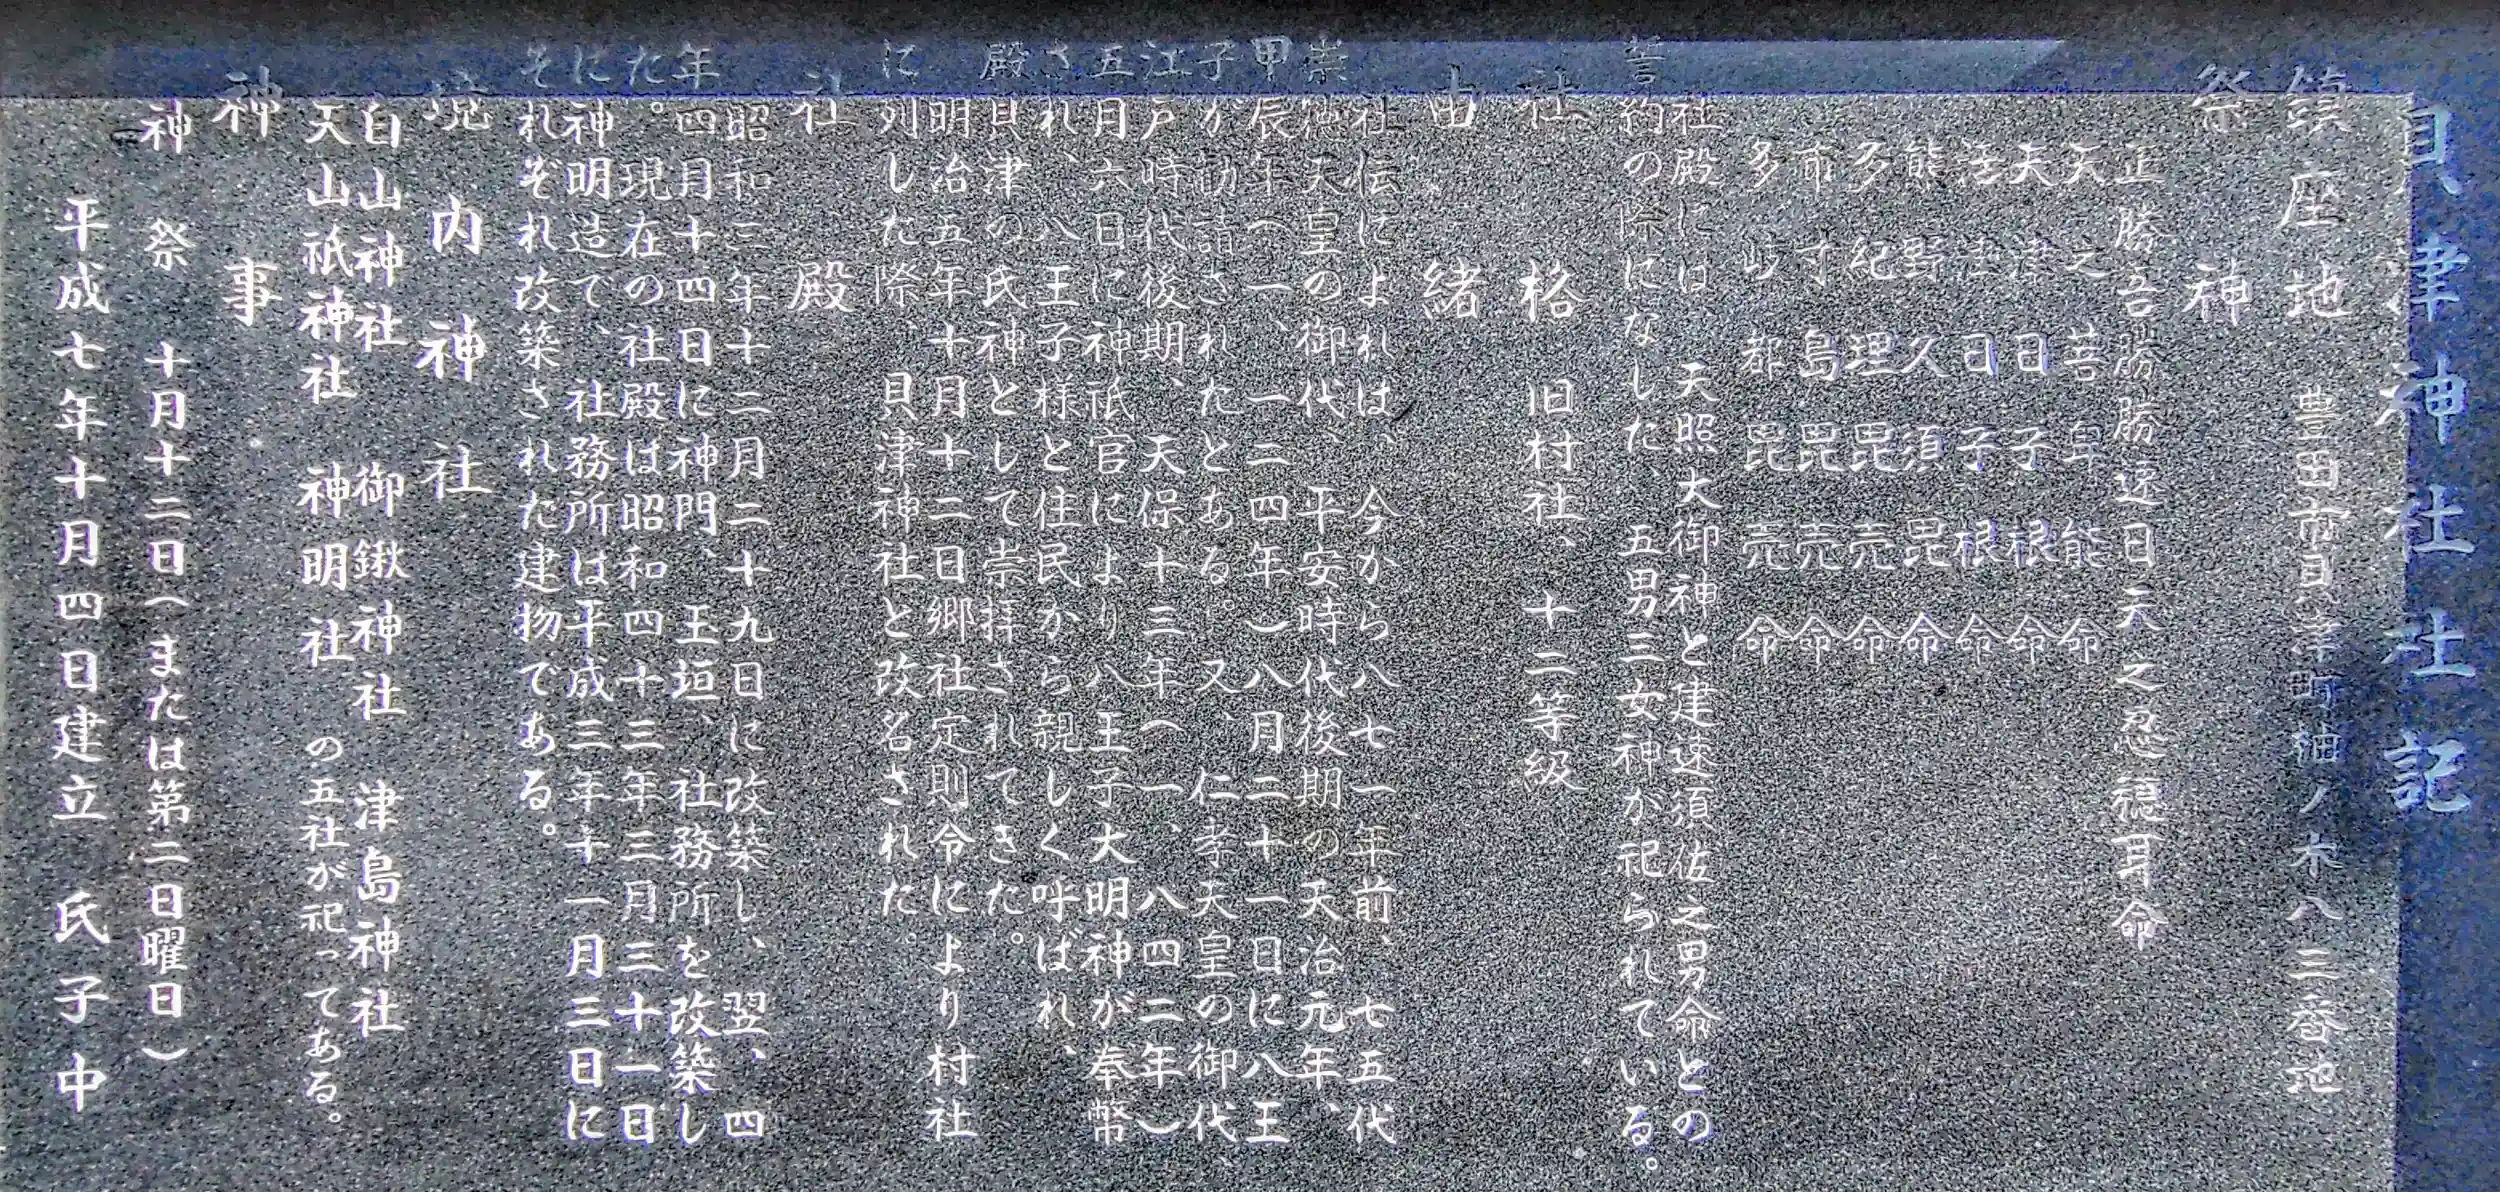 貝津神社社記
鎮座地 豊田市貝津町神ノ木八三番地
祭神
正勝吾勝勝速日天之忍穂耳命
天之菩卑能命
天津日子根命
活津日子根命
熊野久須毘命
多紀理毘売命
市寸島毘売命
多岐都毘売命
社殿には、天照大御神と建速須佐之男命との
誓約の際になした、五男三女神が祀られている。
社格 旧村社、十二等級
由緒
社伝によれば、今から八七一年前、七五代
崇徳天皇の御代、平安時代後期の天治元年、
甲辰年(一、一二四年)八月二十一日に八王
子が勧請されたとある。又、仁孝天皇の御代、
江戸時代後期、天保十三年(一、八四二年)
五月六日に神祇官により八王子大明神が奉幣
され、八王子様と住民から親しく呼ばれ、
殿貝津の氏神として崇拝されてきた。
明治五年十月十二日郷社定則令により村社
に列した際、貝津神社と改名された。
社殿
昭和三年十二月二十九日に改築し、翌、四
年四月十四日に神門、玉垣、社務所を改築し
た。現在の社殿は昭和四十三年三月三十一日
に神明造で、社務所は平成三年十一月三日に
それぞれ改築された建物である。
境内神社
白山神社 御鍬神社 津島神社
天山祇神社 神明社 の五社が祀ってある。
神事
神祭 十月十二日(または第二日曜日)
平成七年十月四日建立 氏子中